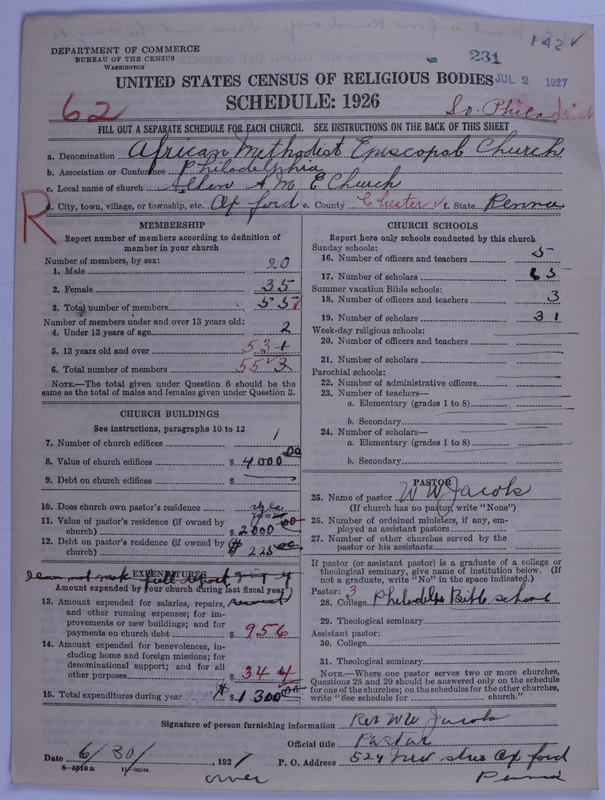 142 ✓
231
JUL 2 1927
DEPARTMENT OF COMMERCE
BUREAU OF THE CENSUS
WASHINGTON
UNITED STATES CENSUS OF RELIGIOUS BODIES
SCHEDULE: 1926
62
So. Phila Dist
FILL OUT A SEPARATE SCHEDULE FOR EACH CHURCH. SEE INSTRUCTIONS ON THE BACK OF THIS SHEET
a. Denomination African Methodist Episcopal Church
b. Association or Conference Philadelphia
c. Local name of church Allen A. M. E Church
d. City, town, village, or township, etc. Oxford e. County Chester ✓ f. State Penna
R
MEMBERSHIP
Report number of members according to definition of member in your church
Number of members, by sex:
1. Male 20
2. Female 35
3. Total number of members 55
Number of members under and over 13 years old:
4. Under 13 years of age 2
5. 13 years old and over 53
6. Total number of members 55
NOTE.—The total given under Question 6 should be the same as the total of males and females given under Question 3.
CHURCH BUILDINGS
See instructions, paragraphs 10 to 12
7. Number of church edifices 1
8. Value of church edifices $ 4000 00
9. Debt on church edifices $
10. Does church own pastor's residence yes
11. Value of pastor's residence (if owned by church) $ 2000 00
12. Debt on pastor's residence (if owned by church) $ 225 00
EXPENDITURES
Amount expended by your church during last fiscal year
13. Amount expended for salaries, repairs, and other running expenses; for improvements or new buildings; and for payments on church debt $ 956
14. Amount expended for benevolences, including home and foreign missions; for denominational support; and for all other purposes $ 344
15. Total expenditures during year $ 1300 00
CHURCH SCHOOLS
Report here only schools conducted by this church
Sunday schools:
16. Number of officers and teachers 5
17. Number of scholars 65
Summer vacation Bible schools:
18. Number of officers and teachers 3
19. Number of scholars 31
Week-day religious schools:
20. Number of officers and teachers
21. Number of scholars
Parochial schools:
22. Number of administrative officers
23. Number of teachers—
a. Elementary (grades 1 to 8)
b. Secondary
24. Number of scholars—
a. Elementary (grades 1 to 8)
b. Secondary
PASTOR
25. Name of pastor W W Jacobs
(If church has no pastor, write "None")
26. Number of ordained ministers, if any, employed as assistant pastors
27. Number of other churches served by the pastor or his assistants
If pastor (or assistant pastor) is a graduate of a college or theological seminary, give name of institution below. (If not a graduate, write "No" in the space indicated.)
Pastor: 3
28. College Philadelp Bible school
29. Theological seminary
Assistant pastor:
30. College
31. Theological seminary
NOTE.—Where one pastor serves two or more churches, Questions 28 and 29 should be answered only on the schedule for one of the churches; on the schedules for the other churches, write "See schedule for church."
Signature of person furnishing information Rev W W Jacobs
Official title Pastor
Date 6/30/ 1927
P. O. Address 524 New stree Oxford
Penna
8—5518a
over